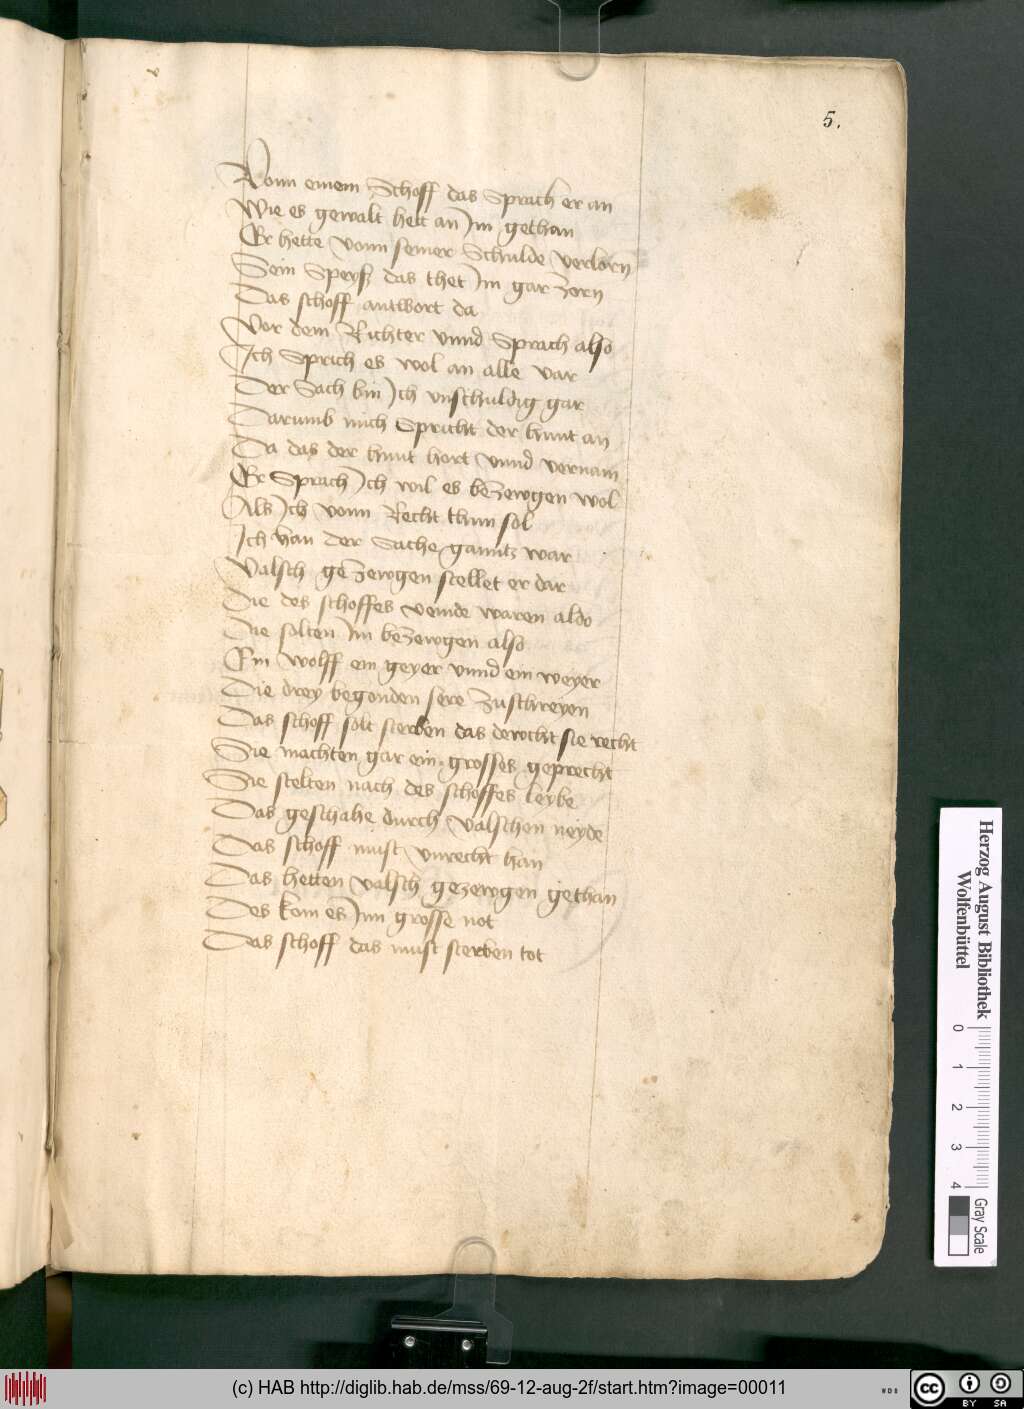 5.
Vonn einem Schoff das Sprach er an
Wie es gewalt hett an Im gethan
Er hette vonn seiner Schulde verlorn
Sein Speysz das thet Im gar Zorn
Das schoff antwort da
Vor dem Richter vnnd Sprach also
Ich Sprich es wol an alle var
Der Sach bin Ich vnschuldig gar
Darumb mich Spricht der hunt an
Da das der hunt hort vnnd vernam
Er Sprach Ich wil es beZewgen wol
Als Ich vonn Recht thun sol
Ich han der Sache ganntz war
Valsch geZewgen stellet er dar
Die des schoffes veinde waren aldo
Die solten Im beZewgen also
Ein wolff ein geyer vnnd ein weyer
Die drey begonden sere Zuschreyen
Das schoff solt sterben das dewcht sie recht
Sie machten gar ein grosses geprecht
Sie stelten nach des schoffes leybe
Das geschahe durch valschen neyde
Das schoff must vnrecht han
Das hetten valsch gezewgen gethan
Des kom es Inn grosse not
Das schoff das must sterben tot
Herzog August Bibliothek
Wolfenbüttel
0 1 2 3 4
Gray Scale
(c) HAB http://diglib.hab.de/mss/69-12-aug-2f/start.htm?image=00011
WDB
cc BY SA